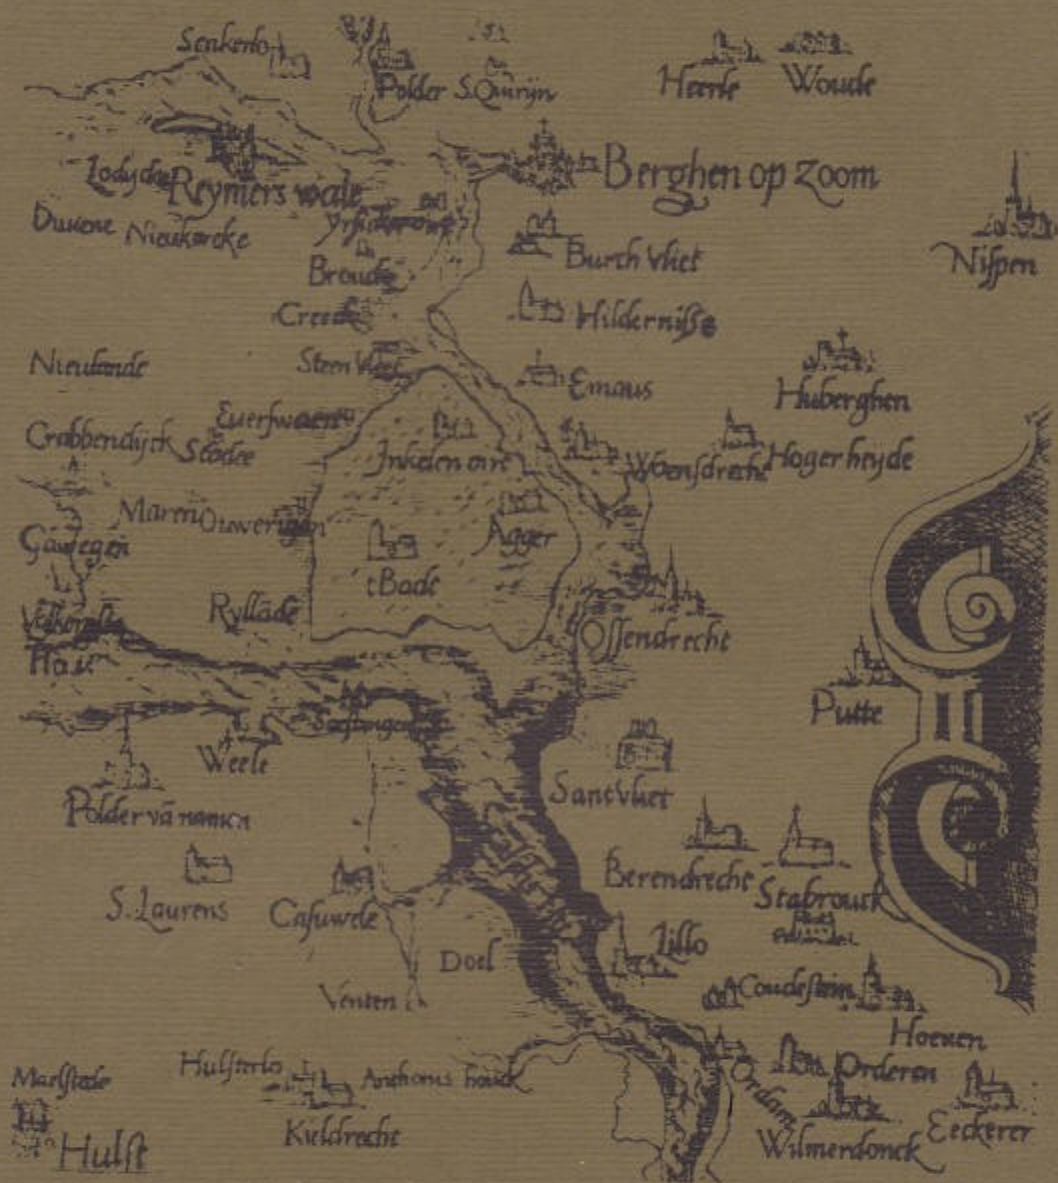 Senkerlo
Polder
S. Quirijn
Heerle
Woude
Lodycke
Reymers wale
Berghen op Zoom
Duvene
Nieukercke
Burch vliet
Nispen
Broude
Creede
Hildernisse
Nieulande
Steen vliet
Emaus
Huberghen
Everswaert
Crabbendijck
Inkelen oirt
Woensdrecht
Hogerheyde
Maren
Ouwerigen
Agger
Gawegen
tBade
Ryllāde
Ossendrecht
Putte
Weele
Sant vliet
Polder vā namen
Berendrecht
Stabrouck
S. Laurens
Casuwele
Lillo
Doel
Coudestein
Venten
Hoeven
Hulsterlo
Anthonis houck
Orderen
Maelstede
Ordam
Kieldrecht
Wilmerdonck
Eeckerer
Hulst